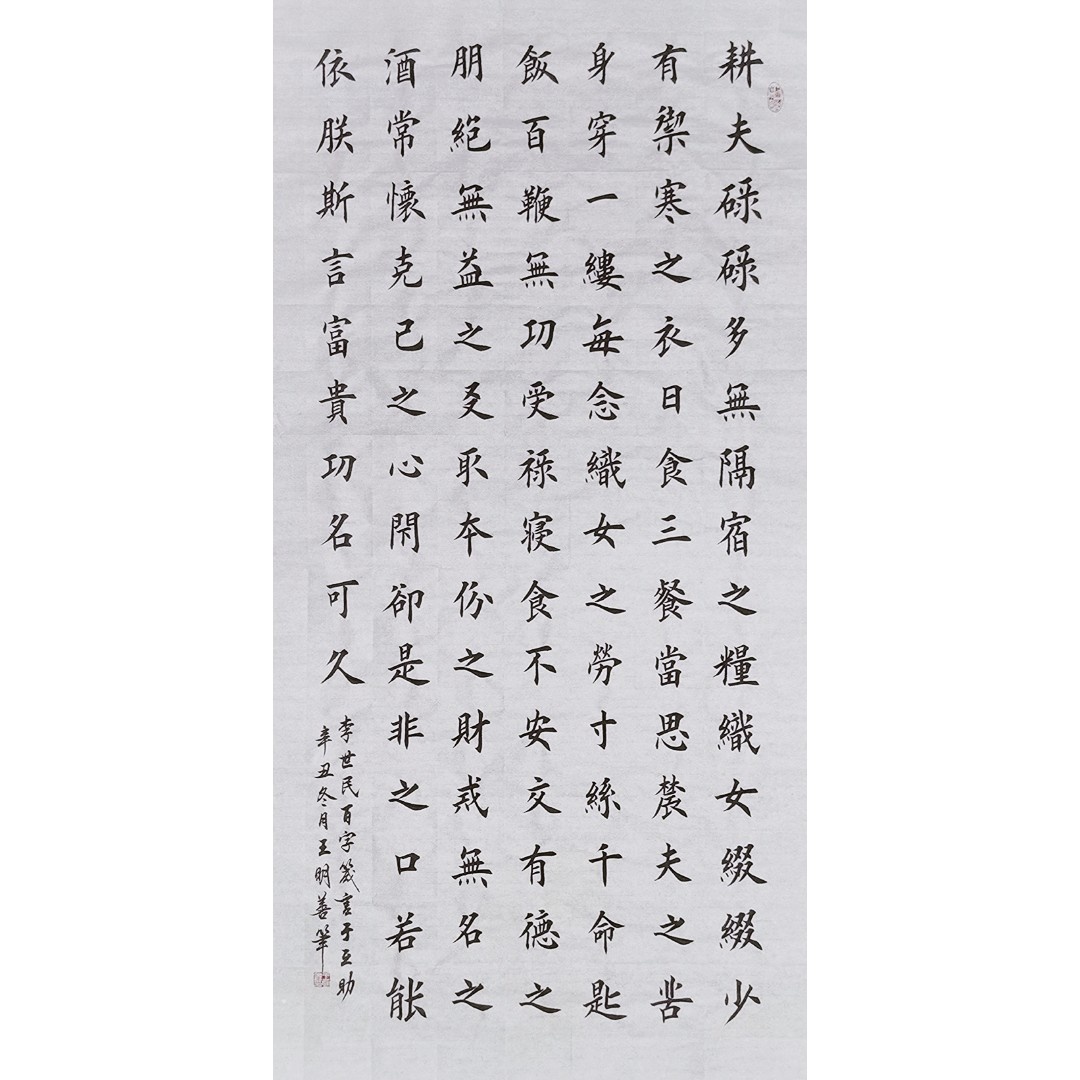 耕夫碌碌多無隔宿之糧織女綴綴少
有禦寒之衣日食三餐當思農夫之苦
身穿一縷每念織女之勞寸絲千命匙
飯百鞭無功受祿寝食不安交有德之
朋絕無益之友取本份之財戒無名之
酒常懷克己之心閑卻是非之口若能
依朕斯言富貴功名可久
李世民百字箴言于互助
辛丑冬月王明善筆